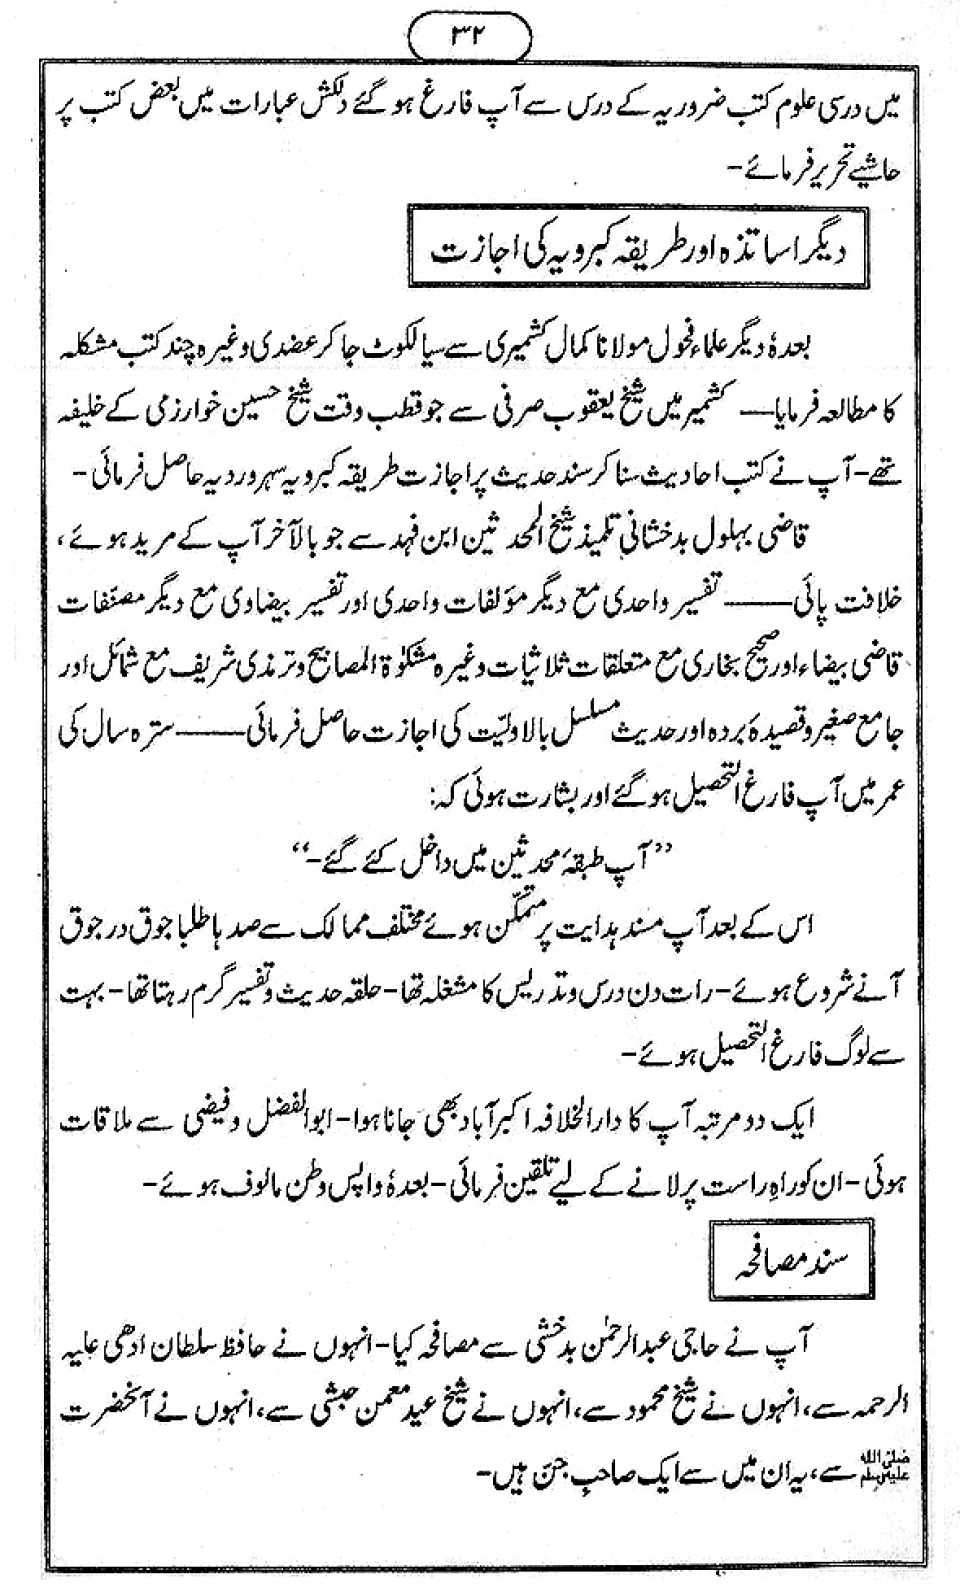 ۳۲
میں درسی علوم کتب ضروریہ کے درس سے آپ فارغ ہو گئے دلکش عبارات میں بعض کتب پر
حاشیے تحریر فرمائے-
دیگر اساتذہ اور طریقہ کبرویہ کی اجازت
بعدۂ دیگر علماء فحول مولانا کمال کشمیری سے سیالکوٹ جا کر عضدی وغیرہ چند کتب مشکلہ
کا مطالعہ فرمایا—— کشمیر میں شیخ یعقوب صرفی سے جو قطب وقت شیخ حسین خوارزمی کے خلیفہ
تھے-آپ نے کتب احادیث سنا کر سند حدیث پر اجازت طریقہ کبرویہ سہروردیہ حاصل فرمائی-
قاضی بہلول بدخشانی تلمیذ شیخ المحدثین ابن فہد سے جو بالآخر آپ کے مرید ہوئے،
خلافت پائی—— تفسیر واحدی مع دیگر مؤلفات واحدی اور تفسیر بیضاوی مع دیگر مصنّفات
قاضی بیضاء اور صحیح بخاری مع متعلقات ثلاثیات وغیرہ مشکوٰۃ المصابیح وترمذی شریف مع شمائل اور
جامع صغیر وقصیدۂ بردہ اور حدیث مسلسل بالاولیّت کی اجازت حاصل فرمائی—— سترہ سال کی
عمر میں آپ فارغ التحصیل ہو گئے اور بشارت ہوئی کہ:
”آپ طبقۂ محدثین میں داخل کئے گئے-“
اس کے بعد آپ مسند ہدایت پر متمکّن ہوئے مختلف ممالک سے صدہا طلبا جوق در جوق
آنے شروع ہوئے-رات دن درس وتدریس کا مشغلہ تھا-حلقہ حدیث وتفسیر گرم رہتا تھا-بہت
سے لوگ فارغ التحصیل ہوئے-
ایک دو مرتبہ آپ کا دارالخلافہ اکبر آباد بھی جانا ہوا-ابوالفضل وفیضی سے ملاقات
ہوئی-ان کو راہِ راست پر لانے کے لیے تلقین فرمائی-بعدۂ واپس وطن مالوف ہوئے-
سند مصافحہ
آپ نے حاجی عبدالرحمٰن بدخشی سے مصافحہ کیا-انہوں نے حافظ سلطان ادھی علیہ
الرحمہ سے، انہوں نے شیخ محمود سے، انہوں نے شیخ عید معمن حبشی سے، انہوں نے آنحضرت
صلی اللہ علیہ وسلم سے، یہ ان میں سے ایک صاحبِ جن ہیں-